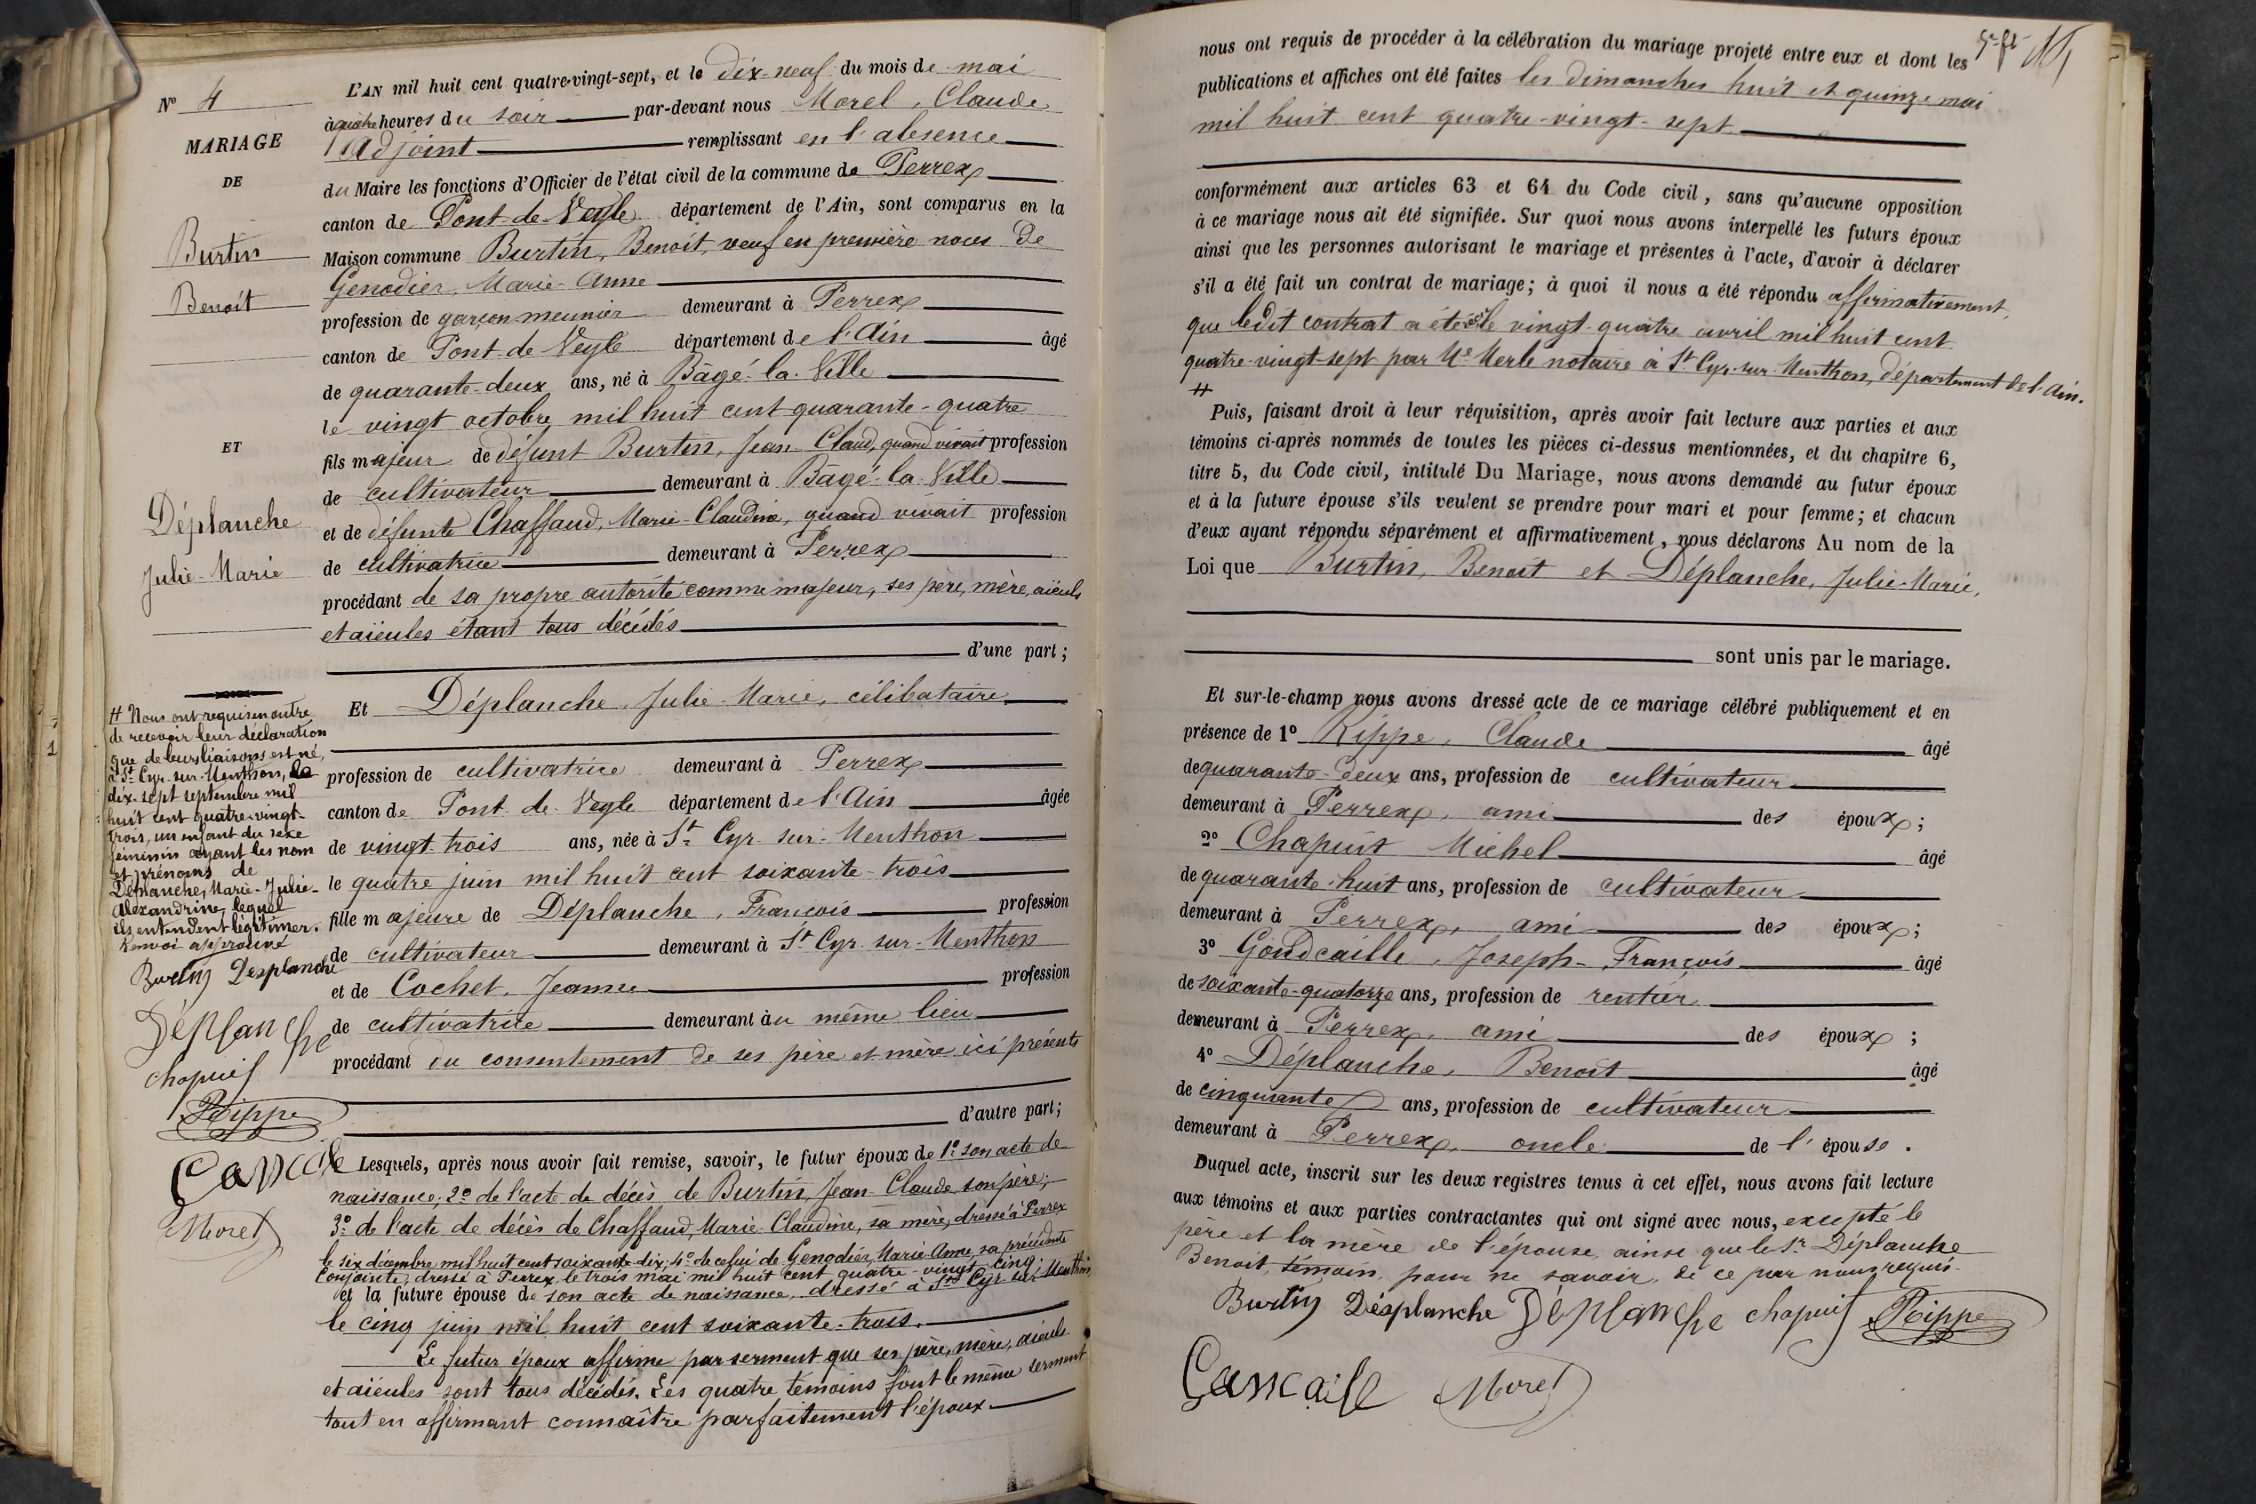 N° 4
MARIAGE
DE
Burtin
Benoît
ET
Déplanche
Julie-Marie
L'AN mil huit cent quatre-vingt-sept, et le dix-neuf du mois de mai
à quatre heures du soir par-devant nous Morel, Claude
adjoint remplissant en l'absence
du Maire les fonctions d'Officier de l'état civil de la commune de Perrex
canton de Pont-de-Veyle département de l'Ain, sont comparus en la
Maison commune Burtin, Benoît, veuf en première noces de
Genodier, Marie-Anne
profession de garçon meunier demeurant à Perrex
canton de Pont-de-Veyle département de l'Ain âgé
de quarante-deux ans, né à Bâgé-la-Ville
le vingt octobre mil huit cent quarante-quatre
fils majeur de défunt Burtin, Jean-Claud, quand vivait profession
de cultivateur demeurant à Bâgé-la-Ville
et de défunte Chaffaud, Marie-Claudine, quand vivait profession
de cultivatrice demeurant à Perrex
procédant de sa propre autorité comme majeur, ses père, mère, aïeuls
et aïeules étant tous décédés
d'une part;
Et Déplanche, Julie-Marie, célibataire
profession de cultivatrice demeurant à Perrex
canton de Pont-de-Veyle département de l'Ain âgée
de vingt-trois ans, née à St Cyr-sur-Menthon
le quatre juin mil huit cent soixante-trois
fille majeure de Déplanche, François profession
de cultivateur demeurant à St Cyr-sur-Menthon
et de Cochet, Jeanne profession
de cultivatrice demeurant au même lieu
procédant du consentement de ses père et mère ici présents
d'autre part;
Lesquels, après nous avoir fait remise, savoir, le futur époux de 1° son acte de
naissance; 2° de l'acte de décès de Burtin, Jean-Claude, son père;
3° de l'acte de décès de Chaffaud, Marie-Claudine, sa mère, dressé à Perrex
le six décembre mil huit cent soixante-dix; 4° de celui de Genodier, Marie-Anne, sa précédente
conjointe, dressé à Perrex le trois mai mil huit cent quatre-vingt-cinq;
et la future épouse de son acte de naissance, dressé à St Cyr-sur-Menthon
le cinq juin mil huit cent soixante-trois.
Le futur époux affirme par serment que ses père, mère, aïeuls
et aïeules sont tous décédés. Les quatre témoins font le même serment
tout en affirmant connaître parfaitement l'époux.
# Nous ont requis en outre
de recevoir leur déclaration
que de leurs liaisons est né,
à St Cyr-sur-Menthon, le
dix-sept septembre mil
huit cent quatre-vingt-
trois, un enfant du sexe
féminin ayant les nom
et prénoms de
Déplanche, Marie-Julie-
Alexandrine, lequel
ils entendent légitimer.
Renvoi approuvé
Burtin Desplanche
Déplanche
Chapuis
Rippe
Morel
nous ont requis de procéder à la célébration du mariage projeté entre eux et dont les
publications et affiches ont été faites les dimanches huit et quinze mai
mil huit cent quatre-vingt-sept
conformément aux articles 63 et 64 du Code civil, sans qu'aucune opposition
à ce mariage nous ait été signifiée. Sur quoi nous avons interpellé les futurs époux
ainsi que les personnes autorisant le mariage et présentes à l'acte, d'avoir à déclarer
s'il a été fait un contrat de mariage; à quoi il nous a été répondu affirmativement,
que ledit contrat a été le vingt-quatre avril mil huit cent
quatre-vingt-sept par Me Merle notaire à St Cyr-sur-Menthon, département de l'Ain.
#
Puis, faisant droit à leur réquisition, après avoir fait lecture aux parties et aux
témoins ci-après nommés de toutes les pièces ci-dessus mentionnées, et du chapitre 6,
titre 5, du Code civil, intitulé Du Mariage, nous avons demandé au futur époux
et à la future épouse s'ils veulent se prendre pour mari et pour femme; et chacun
d'eux ayant répondu séparément et affirmativement, nous déclarons Au nom de la
Loi que Burtin, Benoît et Déplanche, Julie-Marie,
sont unis par le mariage.
Et sur-le-champ nous avons dressé acte de ce mariage célébré publiquement et en
présence de 1° Rippe, Claude âgé
de quarante-deux ans, profession de cultivateur
demeurant à Perrex, ami des époux;
2° Chapuit Michel âgé
de quarante-huit ans, profession de cultivateur
demeurant à Perrex, ami des époux;
3° Goudcaille, Joseph-François âgé
de soixante-quatorze ans, profession de rentier
demeurant à Perrex, ami des époux;
4° Déplanche, Benoît âgé
de cinquante ans, profession de cultivateur
demeurant à Perrex, oncle de l'épouse.
Duquel acte, inscrit sur les deux registres tenus à cet effet, nous avons fait lecture
aux témoins et aux parties contractantes qui ont signé avec nous, excepté le
père et la mère de l'épouse ainsi que le Sr Déplanche
Benoît, témoin, pour ne savoir, de ce par nous requis.
Burtin Désplanche Déplanche Chapuis Rippe
Morel